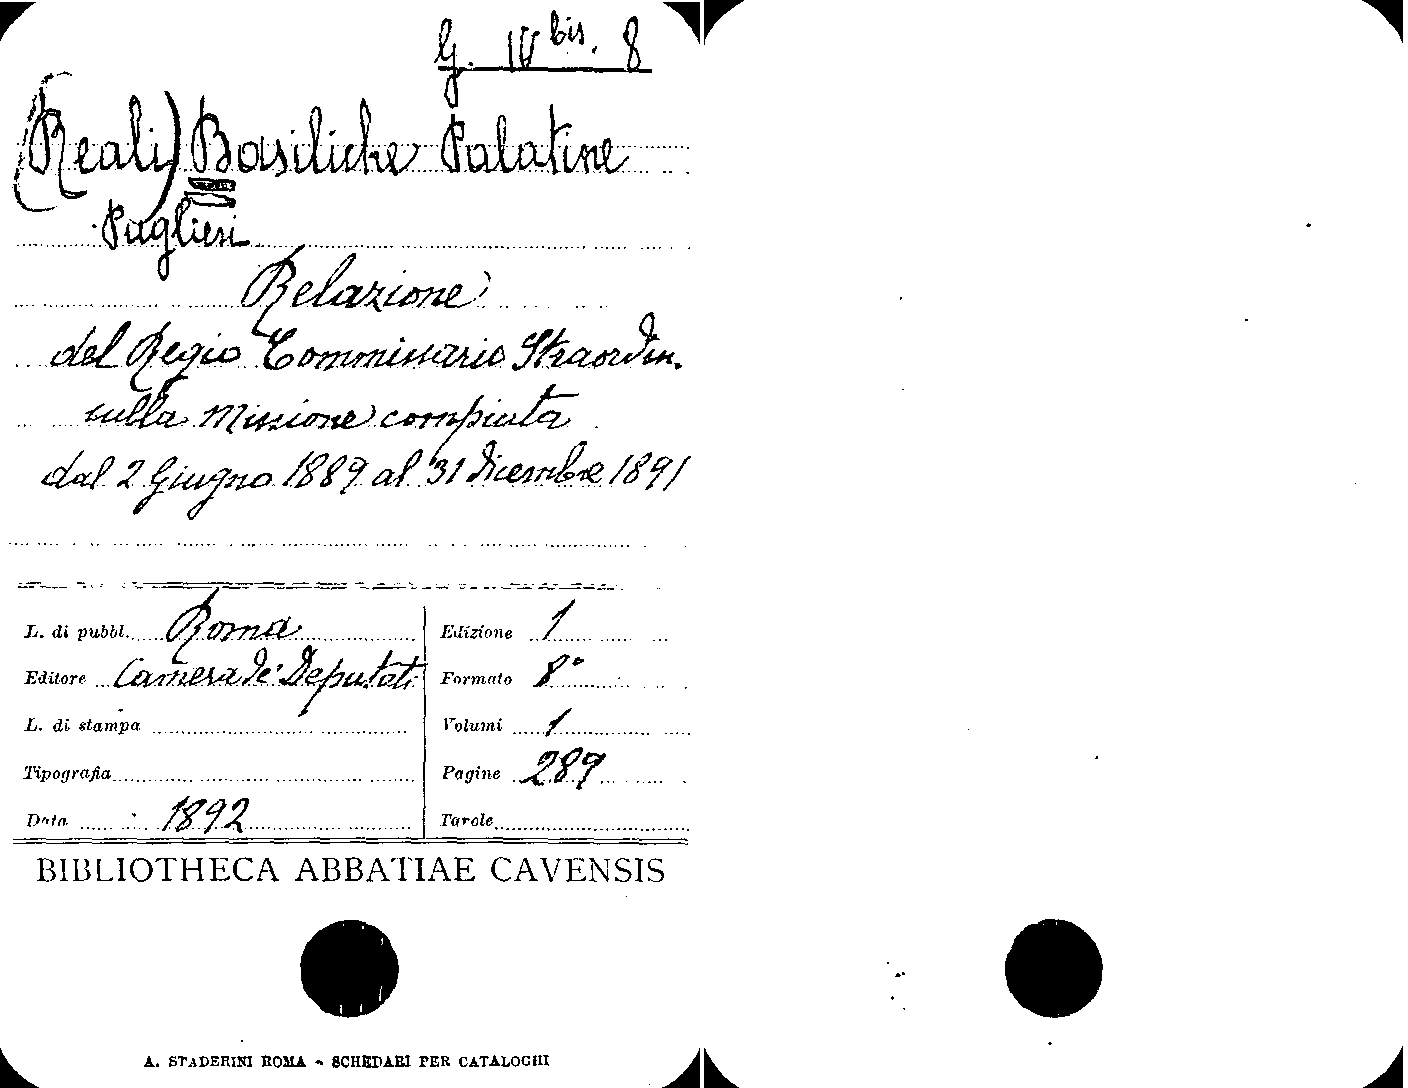 G. IV bis. 8
(Reali) Basiliche Palatine
Pugliesi
Relazione
del Regio Commissario Straordin.
sulla Missione compiuta
dal 2 Giugno 1889 al 31 Dicembre 1891
L. di pubbl. Roma
Editore Camera de' Deputati
L. di stampa
Tipografia
Data 1892
Edizione 1
Formato 8°
Volumi 1
Pagine 289
Tavole
BIBLIOTHECA ABBATIAE CAVENSIS
A. STADERINI ROMA - SCHEDARI PER CATALOGHI